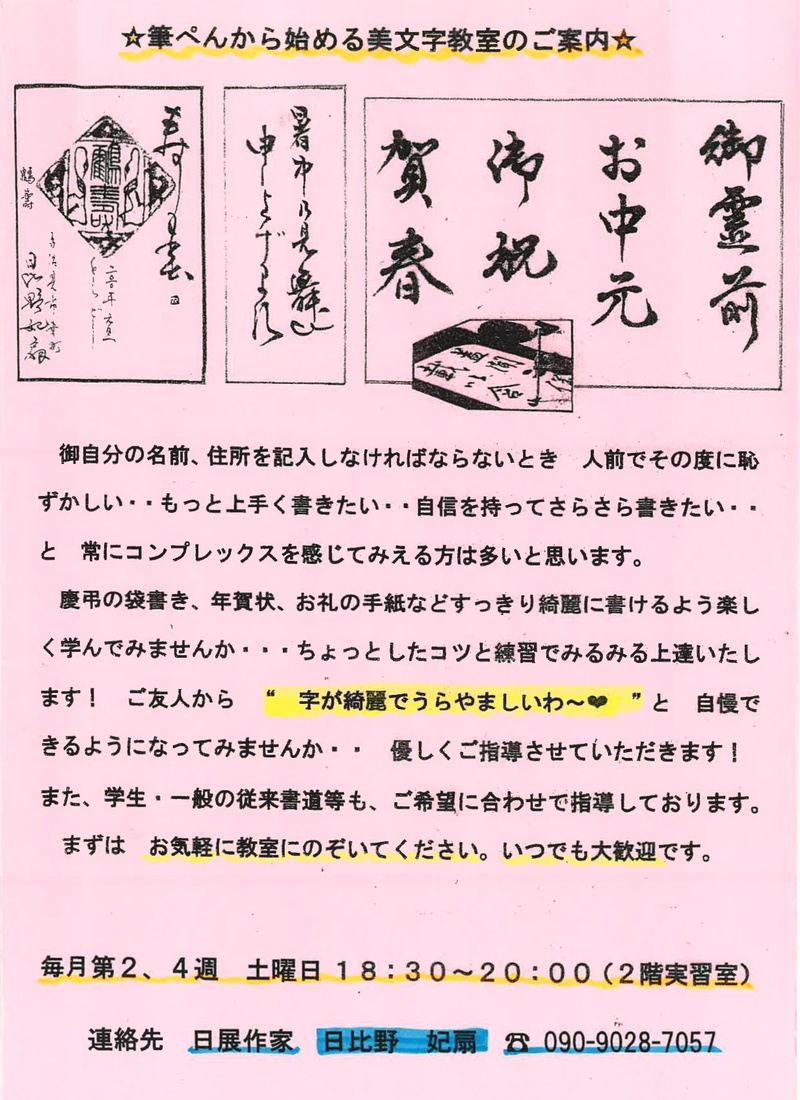 ☆筆ぺんから始める美文字教室のご案内☆
御霊前
お中元
御祝
賀春
暑中お見舞い
申し上げます
寿
鶴寿
日比野妃扇
御自分の名前、住所を記入しなければならないとき　人前でその度に恥
ずかしい・・もっと上手く書きたい・・自信を持ってさらさら書きたい・・
と　常にコンプレックスを感じてみえる方は多いと思います。
慶弔の袋書き、年賀状、お礼の手紙などすっきり綺麗に書けるよう楽し
く学んでみませんか・・・ちょっとしたコツと練習でみるみる上達いたし
ます！　ご友人から　“　字が綺麗でうらやましいわ～❤　”と　自慢で
きるようになってみませんか・・　優しくご指導させていただきます！
また、学生・一般の従来書道等も、ご希望に合わせで指導しております。
まずは　お気軽に教室にのぞいてください。いつでも大歓迎です。
毎月第２、４週　土曜日１８：３０～２０：００（２階実習室）
連絡先　日展作家　日比野　妃扇　☎ 090-9028-7057